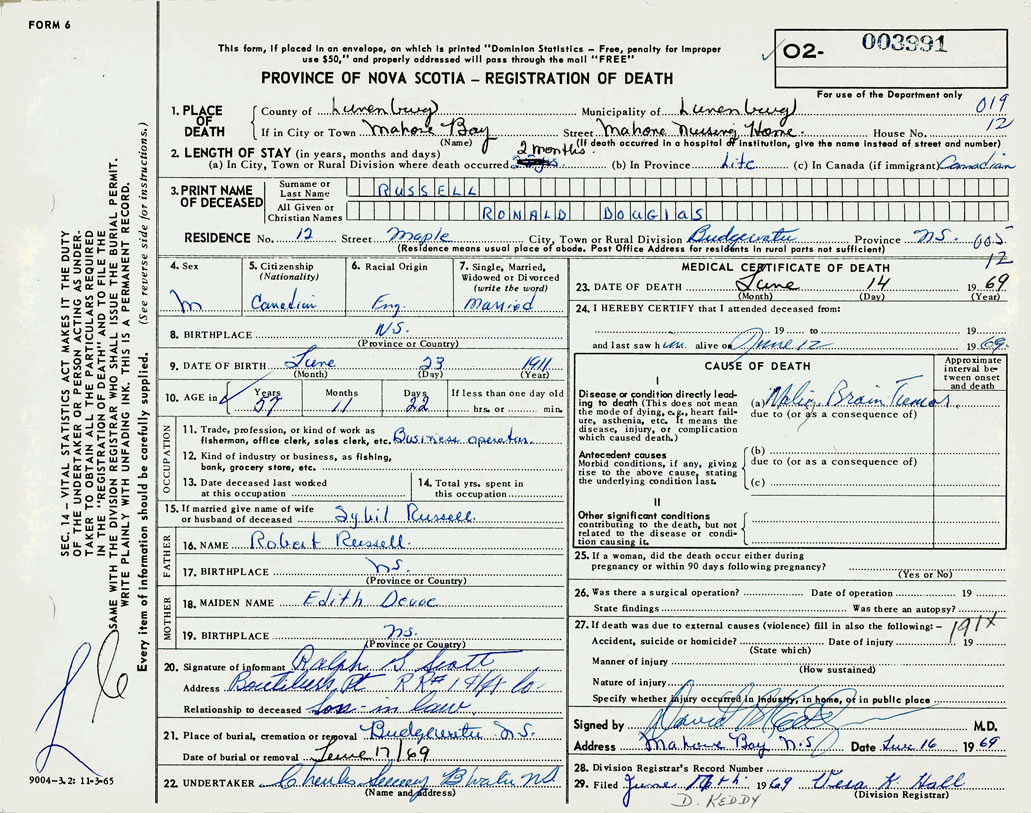 FORM 6
This form, if placed in an envelope, on which is printed "Dominion Statistics – Free, penalty for improper
use $50," and properly addressed will pass through the mail "FREE"
PROVINCE OF NOVA SCOTIA – REGISTRATION OF DEATH
O2- 003991
For use of the Department only
019
12
1. PLACE OF DEATH
County of Lunenburg Municipality of Lunenburg
If in City or Town Mahone Bay Street Mahone Nursing Home. House No.
(Name) (If death occurred in a hospital or institution, give the name instead of street and number)
2. LENGTH OF STAY (in years, months and days) 2 months.
(a) In City, Town or Rural Division where death occurred (b) In Province Life (c) In Canada (if immigrant) Canadian
3. PRINT NAME OF DECEASED
Surname or Last Name RUSSELL
All Given or Christian Names RONALD DOUGLAS
RESIDENCE No. 12 Street Maple City, Town or Rural Division Bridgewater Province N.S. 005
(Residence means usual place of abode. Post Office Address for residents in rural parts not sufficient)
12
4. Sex M
5. Citizenship (Nationality) Canadian
6. Racial Origin Eng.
7. Single, Married, Widowed or Divorced (write the word) Married
8. BIRTHPLACE N.S.
(Province or Country)
9. DATE OF BIRTH June 23 1911
(Month) (Day) (Year)
10. AGE in Years 57 Months 11 Days 22 If less than one day old
hrs. or min.
OCCUPATION
11. Trade, profession, or kind of work as
fisherman, office clerk, sales clerk, etc. Business operator.
12. Kind of industry or business, as fishing,
bank, grocery store, etc.
13. Date deceased last worked
at this occupation
14. Total yrs. spent in
this occupation
15. If married give name of wife
or husband of deceased Sybil Russell.
FATHER
16. NAME Robert Russell.
17. BIRTHPLACE N.S.
(Province or Country)
MOTHER
18. MAIDEN NAME Edith
19. BIRTHPLACE N.S.
(Province or Country)
20. Signature of informant Ralph S Scott
Address Boutiliers Pt RR#1 Hfx Co.
Relationship to deceased Son-in law
21. Place of burial, cremation or removal Bridgewater N.S.
Date of burial or removal June 17/69
22. UNDERTAKER Charles B'Water NS
(Name and address)
MEDICAL CERTIFICATE OF DEATH
23. DATE OF DEATH June 14 1969
(Month) (Day) (Year)
24. I HEREBY CERTIFY that I attended deceased from:
19 to 19
and last saw him alive on June 12 1969.
CAUSE OF DEATH
Approximate interval between onset and death
I
Disease or condition directly leading to death (This does not mean
the mode of dying, e.g., heart failure, asthenia, etc. It means the
disease, injury, or complication
which caused death.)
(a) Malig. Brain Tumor
due to (or as a consequence of)
Antecedent causes
Morbid conditions, if any, giving
rise to the above cause, stating
the underlying condition last.
(b)
due to (or as a consequence of)
(c)
II
Other significant conditions
contributing to the death, but not
related to the disease or condition causing it.
25. If a woman, did the death occur either during
pregnancy or within 90 days following pregnancy?
(Yes or No)
26. Was there a surgical operation? Date of operation 19
State findings Was there an autopsy?
27. If death was due to external causes (violence) fill in also the following: – 191X
Accident, suicide or homicide? Date of injury 19
(State which)
Manner of injury
(How sustained)
Nature of injury
Specify whether injury occurred in industry, in home, or in public place
Signed by M.D.
Address Mahone Bay N.S. Date June 16 1969
28. Division Registrar's Record Number
29. Filed June 1969 Vera K Hall
(Division Registrar)
D. KEDDY
SEC. 14 – VITAL STATISTICS ACT MAKES IT THE DUTY
OF THE UNDERTAKER OR PERSON ACTING AS UNDER-
TAKER TO OBTAIN ALL THE PARTICULARS REQUIRED
IN THE "REGISTRATION OF DEATH" AND TO FILE THE
SAME WITH THE DIVISION REGISTRAR WHO SHALL ISSUE THE BURIAL PERMIT.
WRITE PLAINLY WITH UNFADING INK. THIS IS A PERMANENT RECORD.
Every item of information should be carefully supplied. (See reverse side for instructions.)
9004-3.2: 11-3-65